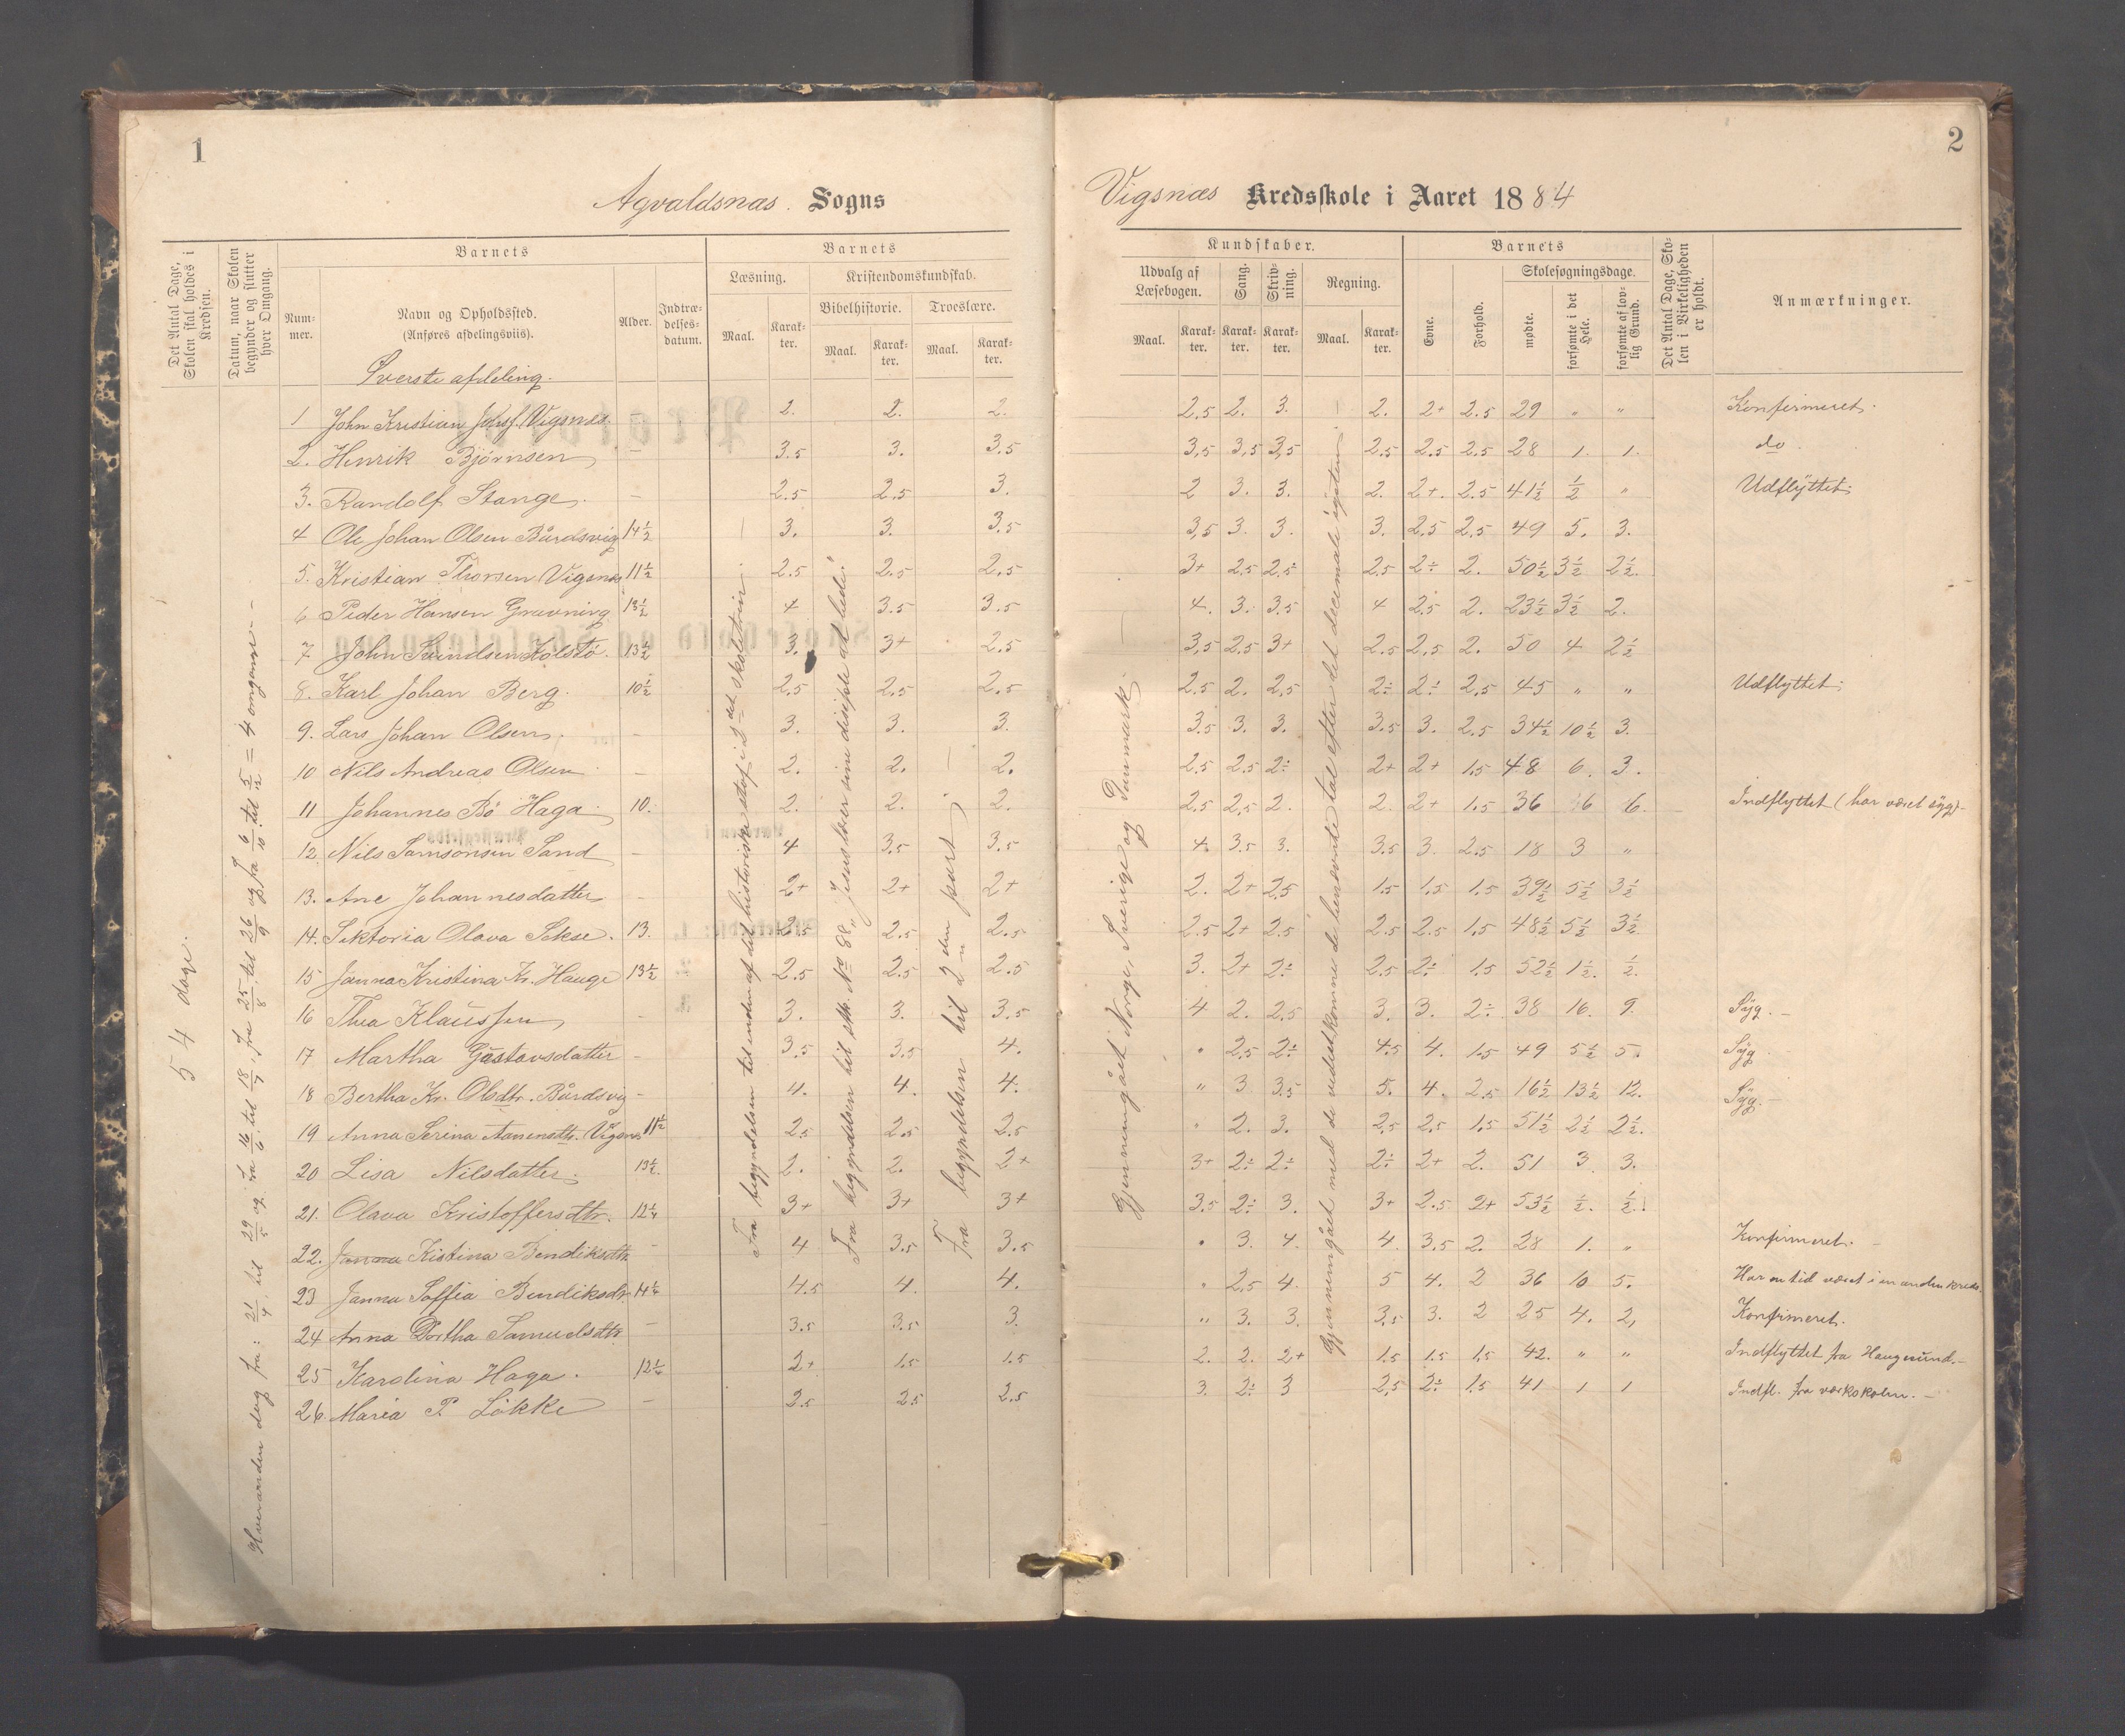 1
2
Agvaldsnæs. Sogns
Vigsnæs Kredsskole i Aaret 1884
Det Antal Dage, Skolen skal holdes i Kredsen.
Datum, naar Skolen begynder og slutter hver Omgang.
Barnets
Nummer.
Navn og Opholdssted.
(Anføres afdelingsviis).
Alder.
Indtrædelsesdatum.
Barnets
Læsning.
Maal.
Karakter.
Kristendomskundskab.
Bibelhistorie.
Maal.
Karakter.
Troeslære.
Maal.
Karakter.
Kundskaber.
Udvalg af Læsebogen.
Maal.
Karakter.
Sang.
Karakter.
Skrivning.
Karakter.
Regning.
Maal.
Karakter.
Barnets
Evne.
Forhold.
Skolesøgningsdage.
mødte.
forsømte i det Hele.
forsømte af lovlig Grund.
Det Antal Dage, Skolen i Virkeligheden er holdt.
Anmærkninger.
Øverste afdeling.
1 John Kristian Johsf. Vigsnæs. – 2. 2. 2. 2.5 2. 3. – 2. 2+ 2.5 29 " " Konfirmeret.
2. Henrik Bjørnsen – 3.5 3. 3.5 3,5 3,5 3,5 2.5 2.5 2.5 28 1. 1. do.
3. Randolf Stange. – 2.5 2.5 3. 2 3. 3. 2. 2+. 2.5 41½ ½ " Udflyttet.
4 Ole Johan Olsen Bårdsvig 14½ 3. 3. 3.5 3,5 3. 3. 3. 2.5 2.5 49 5. 3.
5. Kristian Thorsen Vigsnæs 11½ 2.5 2.5 2.5 3+ 2.5 2.5 2.5 2÷ 2. 50½ 3½ 2½.
6 Peder Hansen Gravning 13½ 4 3.5 3.5 4. 3. 3.5 4 2.5 2. 23½ 3½ 2.
7 John Svendsen Kolstö. 13½ 3. 3+ 2.5 3,5 2.5 3+ 2.5 2.5 2. 50 4 2½
8. Karl Johan Berg. 10½ 2.5 2.5 2.5 2.5 2. 2.5 2÷ 2÷ 2.5 45 " " Udflyttet.
9. Lars Johan Olsen. – 3. 3. 3. 3.5 3. 3. 3.5 3. 2.5 34½ 10½ 3.
10 Nils Andreas Olsen – 2. 2. 2. 2.5 2.5 2÷ 2+ 2+ 1.5 48 6. 3.
11 Johannes Bö Haga. 10. 2. 2. 2. 2.5 2.5 2. 2. 2+ 1.5 36 16 6. Indflyttet (har været syg).
12. Nils Samsonsen Sand – 4 3.5 3.5 4. 3.5 3. 3.5 3. 2.5 18 3 "
13. Ane Johannesdatter – 2+ 2+ 2+ 2. 2+ 2.5 1.5 1.5 1.5 39½ 5½ 3½
14. Sektoria Olava Sekse. 13. 2.5 2.5 2.5 2.5 2+ 2.5 2.5 2.5 1.5 48½ 5½ 3½.
15 Janna Kristina Kr. Hauge 13½ 2.5 2.5 2.5 3. 2+ 2÷ 2.5 2÷ 1.5 52½ 1½. ½.
16 Thea Klaussen – 3. 3. 3.5 4 2. 2.5 3. 3. 2÷ 38 16. 9. Syg. –
17 Martha Gustavsdatter – 3.5 3.5 4. " 2.5 2÷ 4.5 4. 1.5 49 5½ 5. Syg
18 Bertha Kr. Olsdtr. Bårdsvig – 4. 4. 4. " 3 3.5 5. 4. 2.5 16½ 13½ 12. Syg. –
19 Anna Serina Aanensdtr. Vigsnæs 11½ 2.5 2.5 2.5 " 2. 3. 2.5 2.5 1.5 51½ 2½ 2½.
20 Lisa Nilsdatter. 13½. 2. 2. 2+ 3+ 2÷ 2÷ 2÷ 2+ 2. 51 3. 3.
21. Olava Kristoffersdtr. 12¼ 3+ 3+ 3+ 3.5 2÷ 3. 3+ 2.5 2+ 53½ ½. ½.
22. Janna Kistina Bendiksdtr. – 4 3.5 3.5 " 3. 4. 4. 3.5 2. 28 1. " Konfirmeret. –
23 Janna Soffia Bendiksdr. 14¼ 4.5 4. 4. " 2.5 4. 5 4. 2 36 10 5. Har en tid været i en anden kreds.
24 Anna Dortha Samuelsdtr – 3.5 3.5 3. " 3. 3. 3.5 3. 2 25 4. 2, Konfirmeret.
25 Karolina Haga. 12¼ 2+ 1.5 1.5 2. 2. 2+ 1.5 1.5 1.5 42. " " Indflyttet fra Haugesund. –
26. Maria P. Lökke – 2.5 2.5 2.5 3. 2÷ 3 2,5 2÷ 1.5 41 1 1 Indfl. fra værkskolen. –
54 dage.
Hveranden dag fra: 21/4. til 29/5 og fra 16/6 til 18/7, fra 25/8. til 26/9 og fra 6/10. til 5/12 = 4 omgange – –
Fra begyndelsen til enden af det historiske stof i 2det skoletrin.
Fra begyndelsen til stk. No 88 "Jesus lærer sine disiple at bede."
Fra begyndelsen til 2den part
Gjennemgået Norge, Sverige og Danmark.
Gjennemgået med de vidstkomne de benævnte tal efter det decimale system.